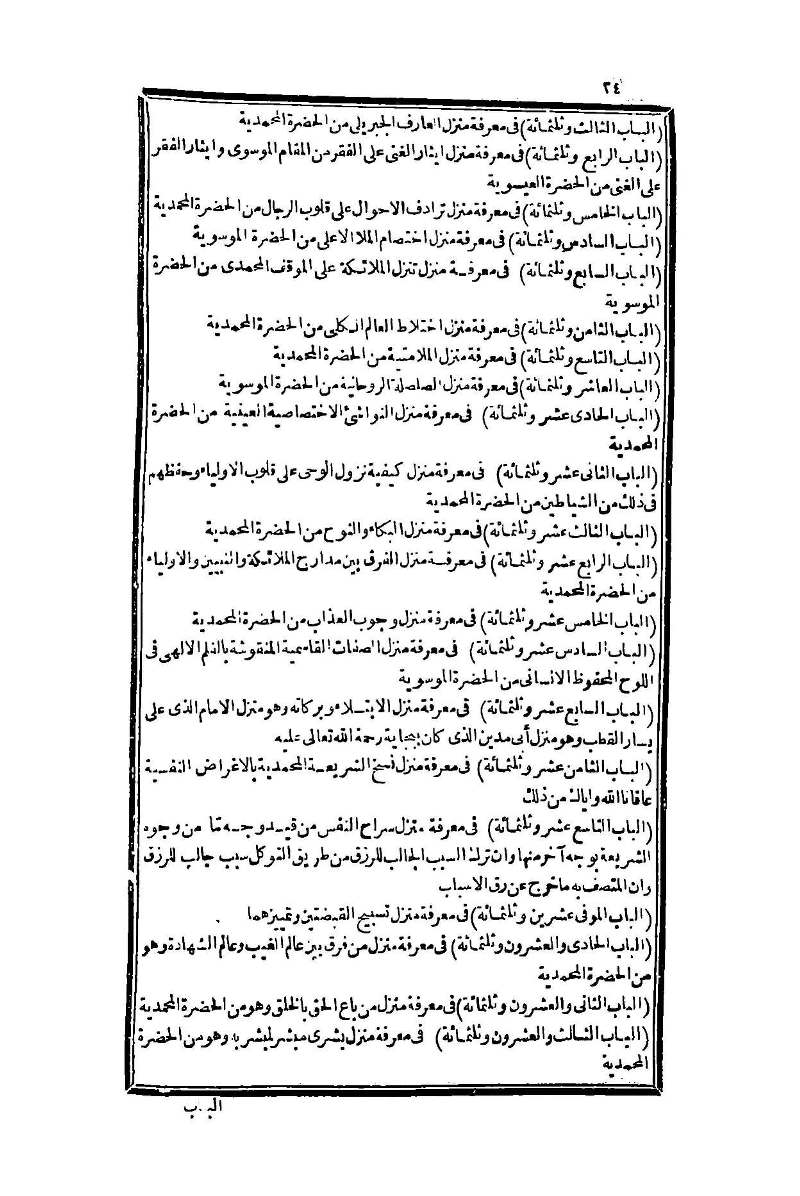 ٢٤
(الباب الثالث وثلثمائة) فى معرفة منزل العارف الجبريلى من الحضرة المحمدية
(الباب الرابع وثلثمائة) فى معرفة منزل ايثار الغنى على الفقر من المقام الموسوى وايثار الفقر
على الغنى من الحضرة العيسوية
(الباب الخامس وثلثمائة) فى معرفة منزل ترادف الاحوال على قلوب الرجال من الحضرة المحمدية
(الباب السادس وثلثمائة) فى معرفة منزل اختصام الملا الاعلى من الحضرة الموسوية
(الباب السابع وثلثمائة) فى معرفة منزل تنزل الملائكة على الموقف المحمدى من الحضرة
الموسوية
(الباب الثامن وثلثمائة) فى معرفة منزل اختلاط العالم الكلى من الحضرة المحمدية
(الباب التاسع وثلثمائة) فى معرفة منزل الملامتية من الحضرة المحمدية
(الباب العاشر وثلثمائة) فى معرفة منزل الصلصلة الروحانية من الحضرة الموسوية
(الباب الحادى عشر وثلثمائة) فى معرفة منزل النواشئ الاختصاصية الغيبية من الحضرة
المحمدية
(الباب الثانى عشر وثلثمائة) فى معرفة منزل كيفية نزول الوحى على قلوب الاولياء وحفظهم
فى ذلك من الشياطين من الحضرة المحمدية
(الباب الثالث عشر وثلثمائة) فى معرفة منزل البكاء والنوح من الحضرة المحمدية
(الباب الرابع عشر وثلثمائة) فى معرفة منزل الفرق بين مدارج الملائكة والنبيين والاولياء
من الحضرة المحمدية
(الباب الخامس عشر وثلثمائة) فى معرفة منزل وجوب العذاب من الحضرة المحمدية
(الباب السادس عشر وثلثمائة) فى معرفة منزل الصفات القاسمية المنقوشة بالقلم الالهى فى
اللوح المحفوظ الانسانى من الحضرة الموسوية
(الباب السابع عشر وثلثمائة) فى معرفة منزل الابتلاء وبركاته وهو منزل الامام الذى على
يسار القطب وهو منزل أبى مدين الذى كان ببجاية رحمة الله تعالى عليه
(الباب الثامن عشر وثلثمائة) فى معرفة منزل نسخ الشريعة المحمدية بالاغراض النفسية
عافانا الله واياك من ذلك
(الباب التاسع عشر وثلثمائة) فى معرفة منزل سراح النفس من قيد وجه تما من وجوه
الشريعة بوجه آخر منها وان ترك السبب الجالب للرزق من طريق التوكل سبب جالب للرزق
وان المتصف به ما خرج عن رق الاسباب
(الباب الموفى عشرين وثلثمائة) فى معرفة منزل تسبيح القبضتين وتمييزهما
(الباب الحادى والعشرون وثلثمائة) فى معرفة منزل من فرق بين عالم الغيب وعالم الشهادة وهو
من الحضرة المحمدية
(الباب الثانى والعشرون وثلثمائة) فى معرفة منزل من باع الحق بالخلق وهو من الحضرة المحمدية
(الباب الثالث والعشرون وثلثمائة) فى معرفة منزل بشرى مبشر لمبشر به وهو من الحضرة
المحمدية
الباب